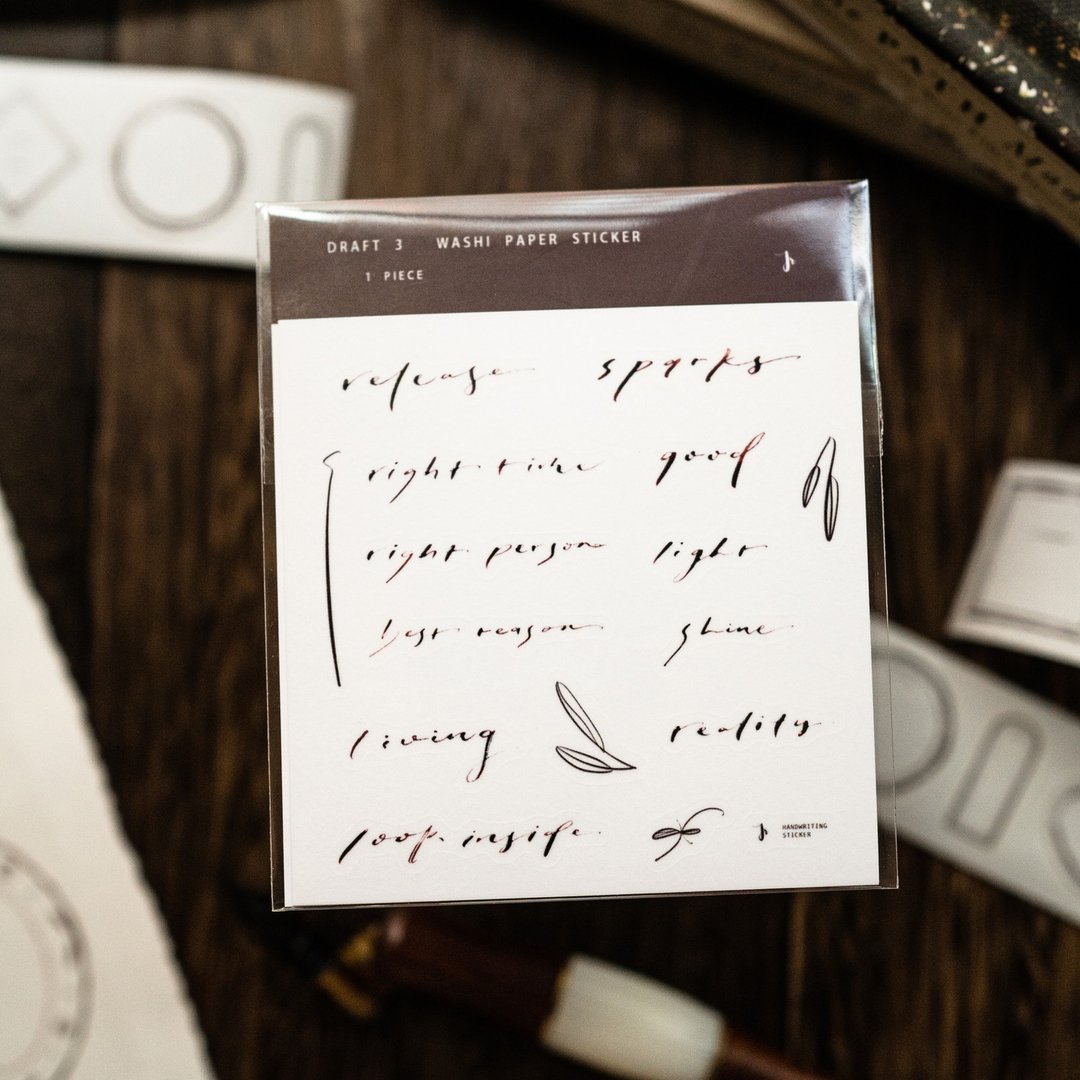 DRAFT 3 WASHI PAPER STICKER
1 PIECE
release sparks
right time good
right person light
best reason shine
living reality
look inside
HANDWRITING
STICKER
PATH